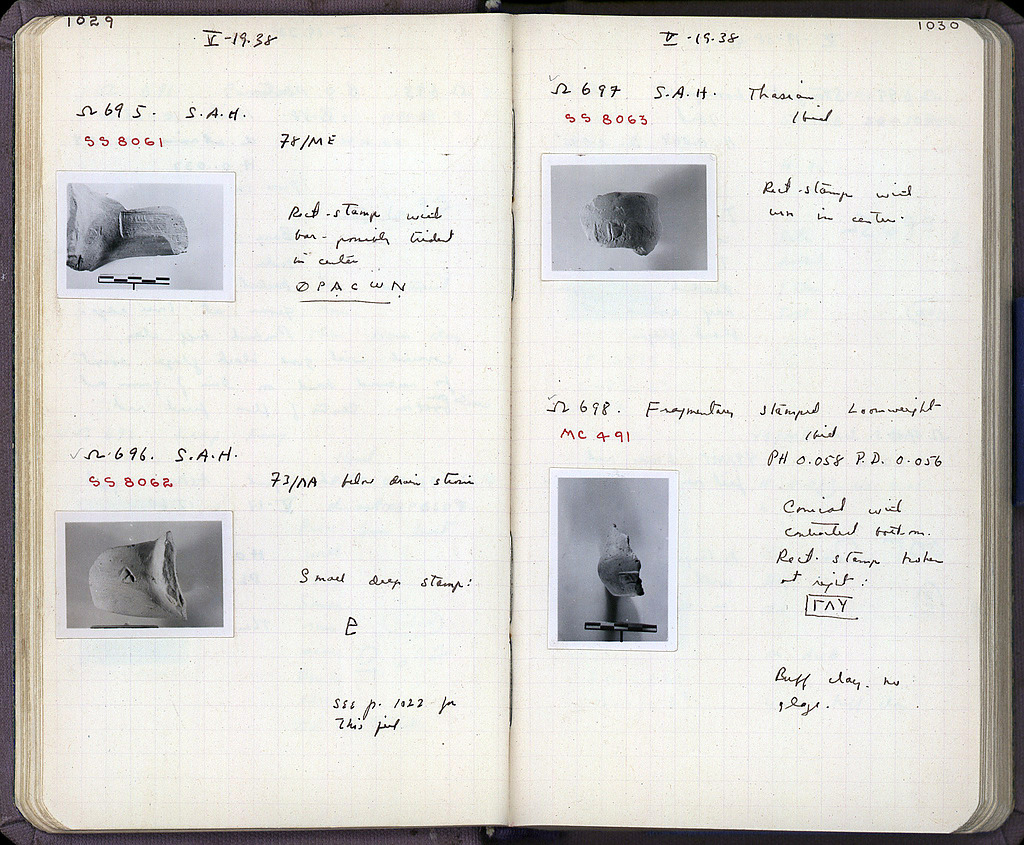 1029
V-19.38
Ω 695. S.A.H.
SS 8061
78/ME
Rect. stamp with
bar - possibly trident
in center
ΘΡΑCWN
Ω 696. S.A.H.
SS 8062
73/ΛΑ below drain
Small deep stamp:
See p. 1022 for
this
1030
V-19.38
Ω 697 S.A.H. Thasian
SS 8063
ibid
Rect. stamp with
urn in center.
Ω 698. Fragmentary stamped Loomweight
MC 491
ibid
PH 0.058 P.D. 0.056
Conical with
contracted bottom.
Rect. stamp broken
at right:
ΓΛΥ
Buff clay. no
glaze.